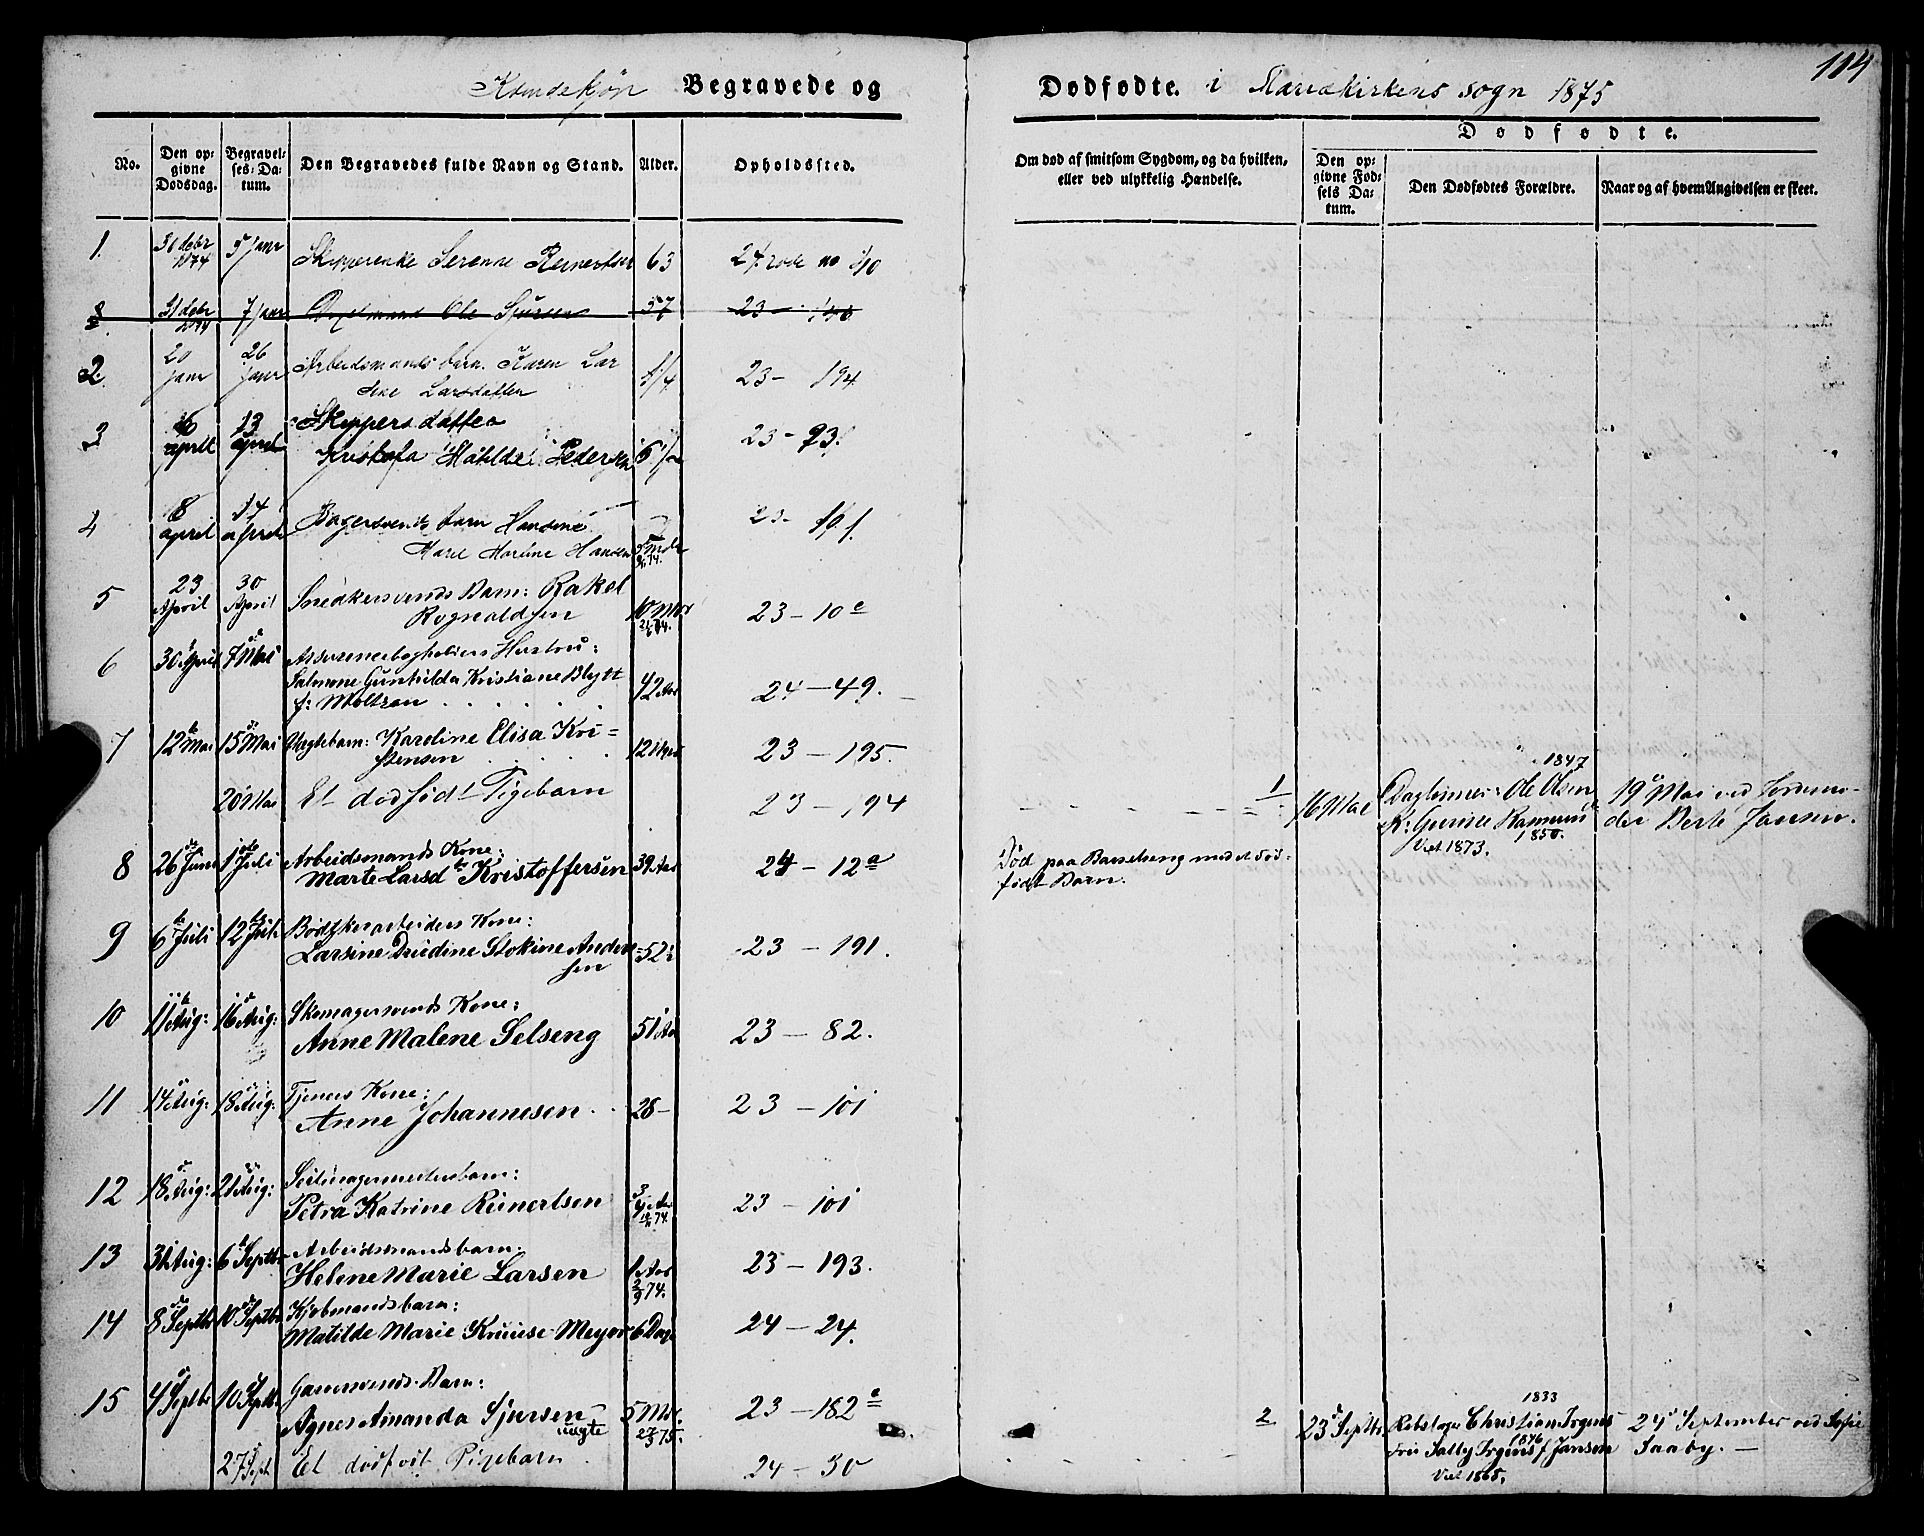 114
Kvindekjøn Begravede og Dødfødte. i Mariakirkens sogn 1875
No.
Den opgivne Dødsdag.
Begravelses-Datum.
Den Begravedes fulde Navn og Stand.
Alder.
Opholdssted.
Om død af smitsom Sygdom, og da hvilken, eller ved ulykkelig Hændelse.
Dødfødte.
Den opgivne Fødsels Datum.
Den Dødfødtes Forældre.
Naar og af hvem Angivelsen er skeet.
1. 31 debr 1874 5 janr Skipperenke Serenne Reinertsen 63 24 rode no 40
31 debr 7 janr Ole Sjursen 57 23
2. 20 janr 26 janr Arbeidsmands barn. Karen Lar
ine Larsdatter 1/4 23 - 194
3 6 aprill 13 aprill Skippersdatter
Kristofa Matilde Pedersen 23 - 231
4 8 april 14 april Bagersvends barn Hansine
Marie Martine Hansen 5 Mdr 23 - 101.
5 23 April 30 April Snedkersvends Barn: Rakel
Rognaldsen 10 Mdr 23 - 10 e
6 30 April 7 Mai Assurancebogholders Hustru:
Salmone Gunhilda Kristiane Blytt
f: Moltzau 42 Aar 24 - 49.
7 12 Mai 15 Mai Uægtebarn: Karoline Elisa Kri=
stensen 12 Uger 23 - 195.
20 Mai Et dødfødt Pigebarn 23 - 194
1 16 Mai Dagleiner: Ole Olsen 1847
K: Gurine Rasmusd 1850.
Viet 1873.
19 Mai ved Jordmo-
der Berte Jansen.
8 26 Juni 1 Juli Arbeidsmands Kone:
Marte Larsd Kristoffersen 39 Aar 24 - 12 a
Død paa Barselseng med et død-
født Barn.
9 6 Juli 12 Juli Bødtkerarbeiders Kone:
Larsine Drüdine Stokine Ander
sen 52 23 - 191.
10 11 Aug: 16 Aug: Skomagersvends Kone:
Anne Malene Selseng 51 Aar 23 - 82.
11 14 Aug: 18 Aug: Tjeners Kone:
Anne Johannesen 28 - 23 - 101
12 18 Aug: 21 Aug: Seilmagermesterbarn:
Petra Katrine Reinertsen 3/4 Aar 23 - 101
13 31 Aug: 6 Septbr Arbeidsmandsbarn:
Helene Marie Larsen 1 Aar 2/9 74. 23 - 193.
14 8 Septbr 10 Septbr Kjøbmandsbarn:
Matilde Marie Kruuse Meyer 6 Dag 24 - 24.
15 4 Septbr 10 Septbr Garversvends Barn:
Agnes Amanda Sjursen
uægte 5 Mdr. 27/3 75. 23 - 182 e
27 Sept Et dødfødt Pigebarn 24 - 30
2 23 Septbr Rebslager Christian Irgens 1833
Fru Sally Irgens f Jansen 1846
Viet 1865.
24 September ved Sofie
Saaby. -